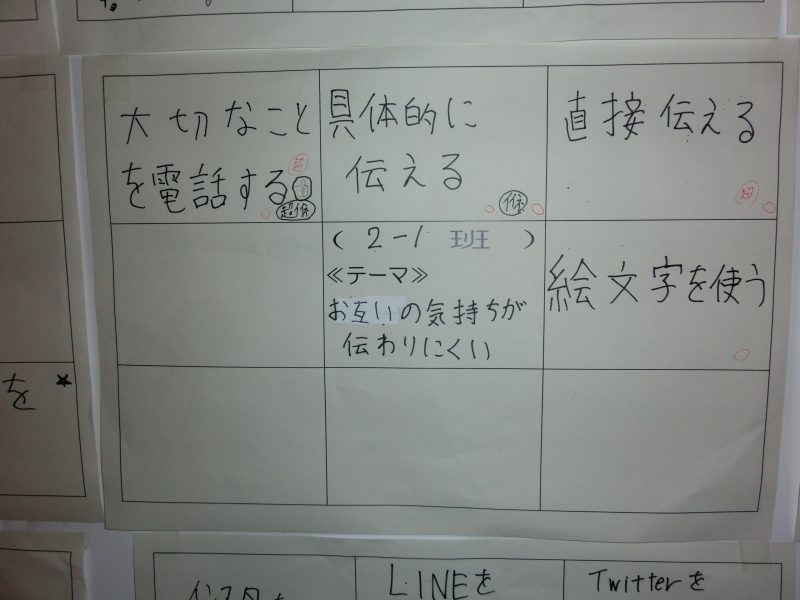 大切なこと
を電話する
超
超依
具体的に
伝える
依
直接伝える
超
( 2-1 班 )
≪テーマ≫
お互いの気持ちが
伝わりにくい
絵文字を使う
★
を
LINEを
Twitterを